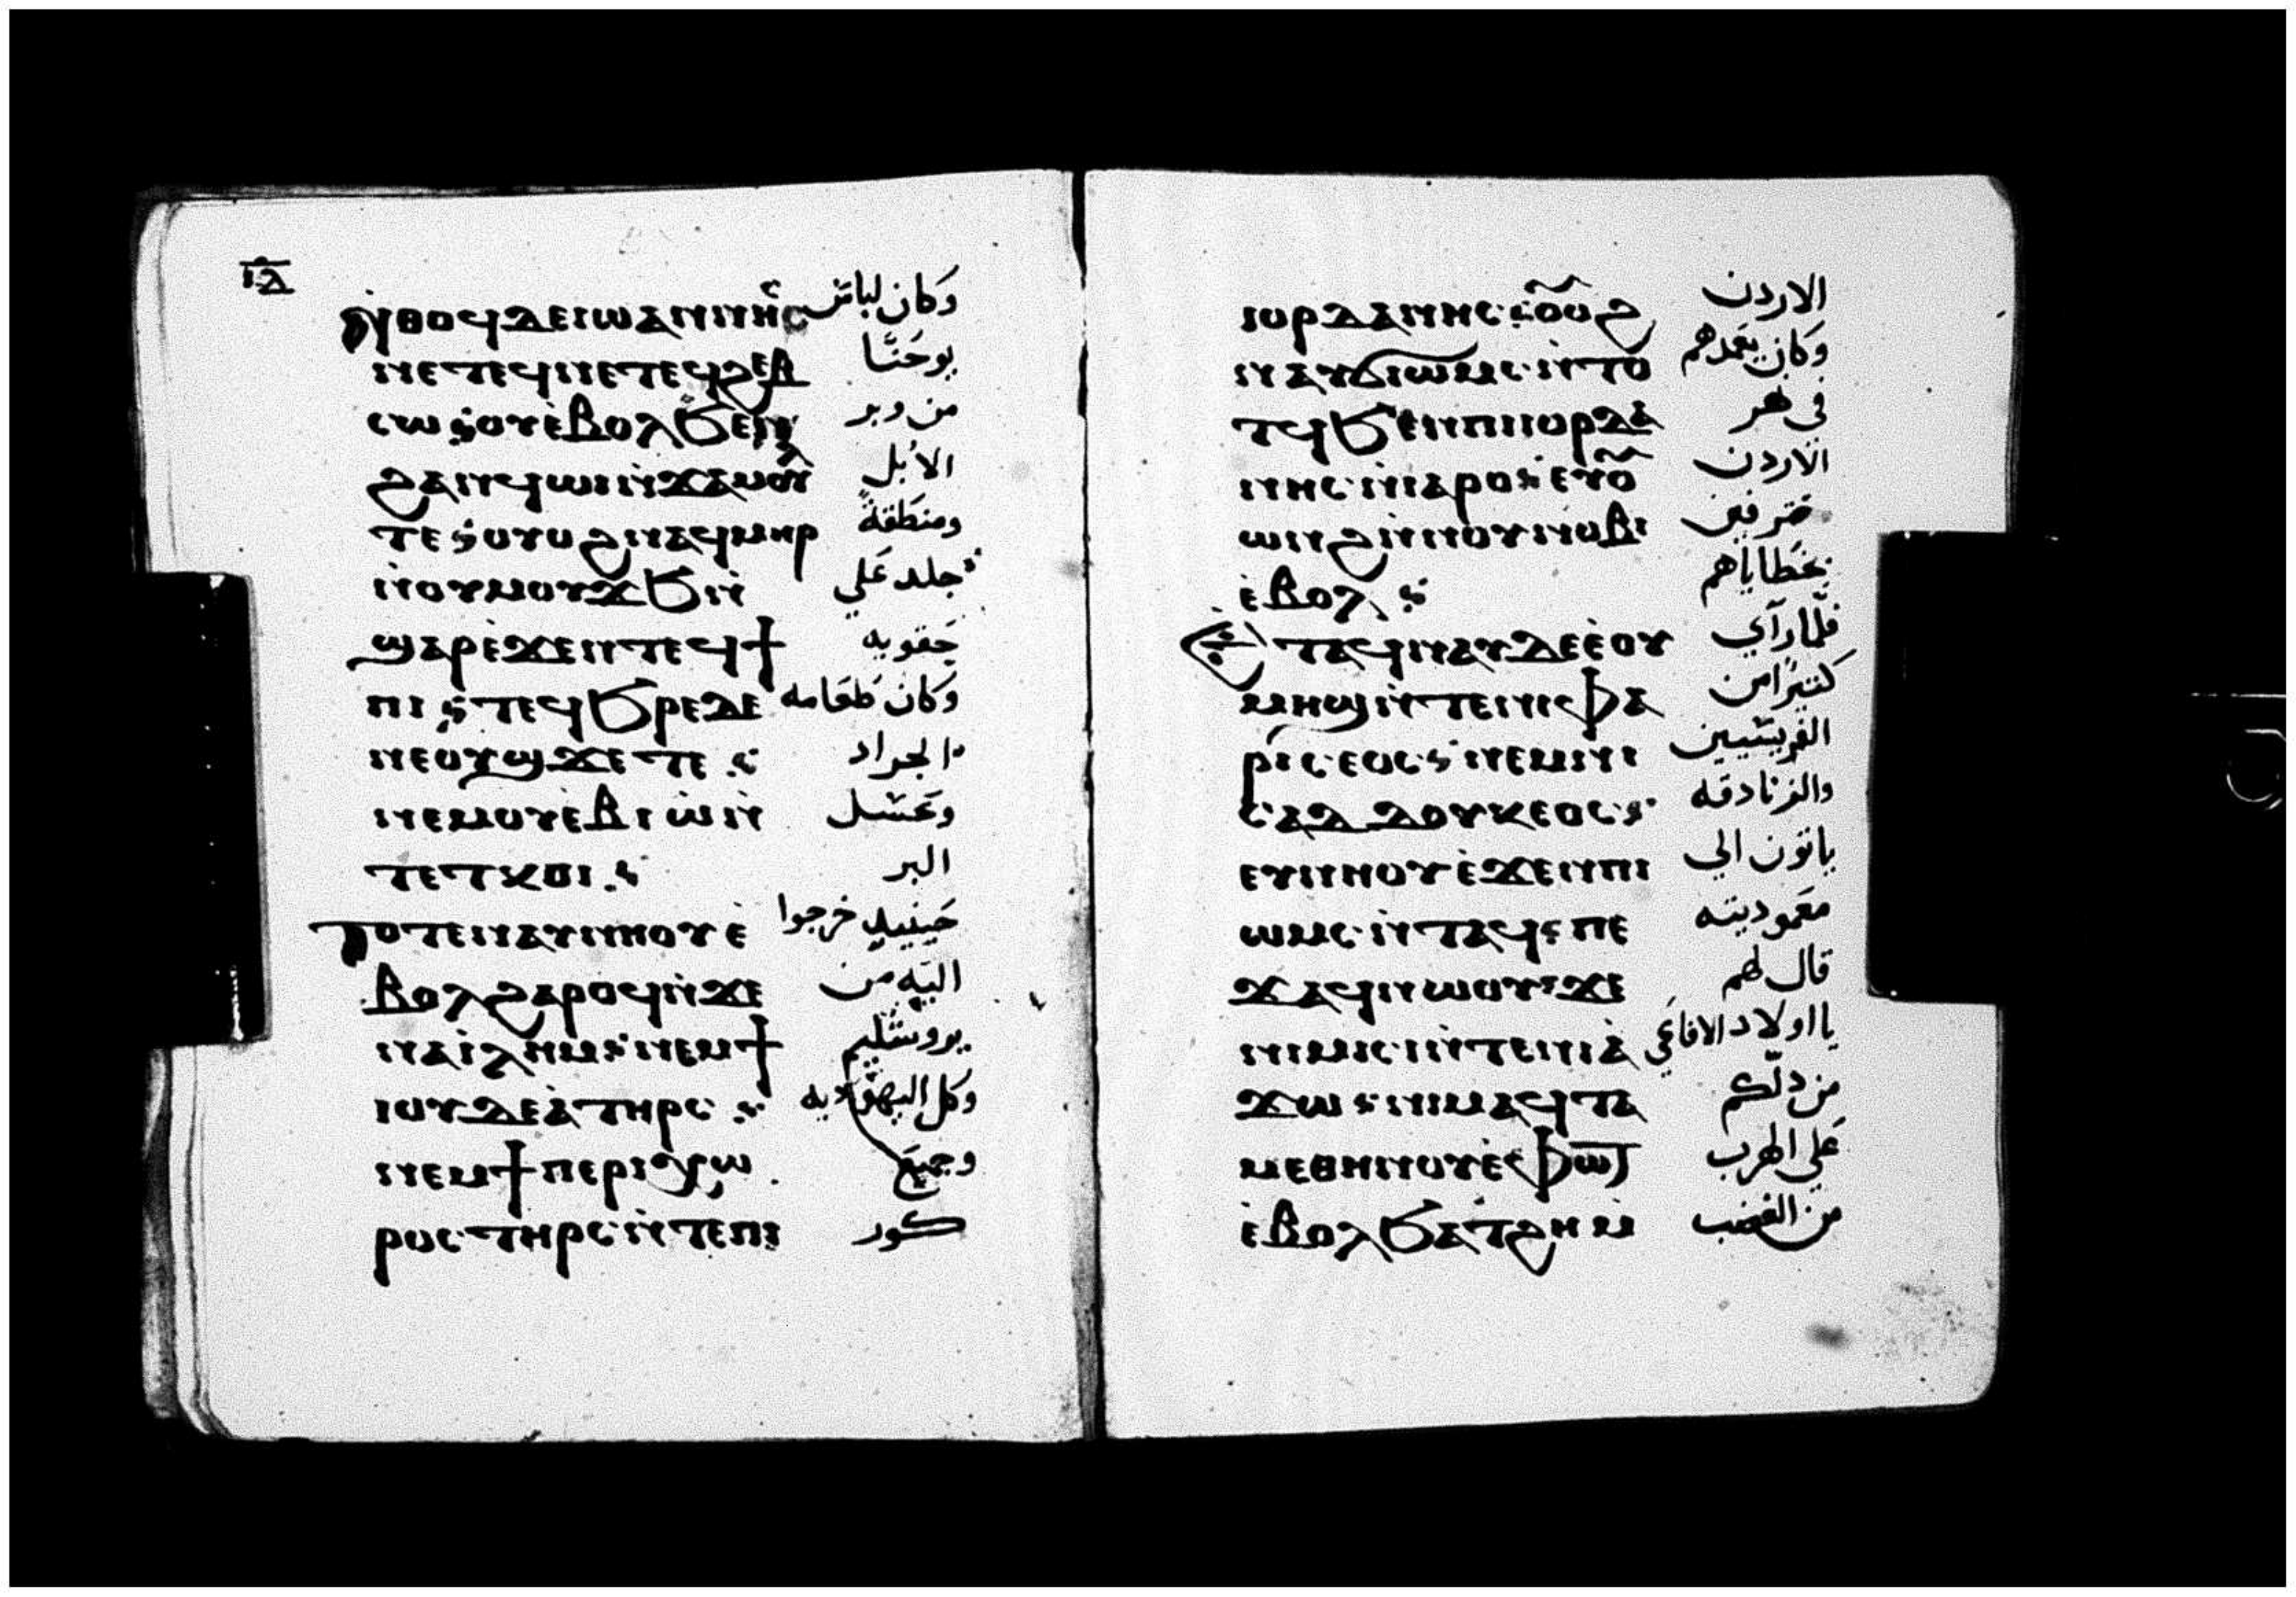 ⲓⲇ
ⲛ̇ⲑⲟϥⲇⲉⲓⲱⲁⲛⲛⲏⲥ وكان لباس
ⲛⲉⲧⲉϥⲛⲉⲧⲉϥϩⲉⲃ يوحَنَّا
ⲥⲱⲥ̇ⲟⲩⲉ̇ⲃⲟⲗϧⲉⲛ من وبر
ϩⲁⲛϥⲱⲓⲛ̇ϫⲁⲙⲟⲩ الابل
ⲧⲉ⳾ⲟⲩⲟϩⲛⲁϥⲙⲏⲣ ومنطقة
ⲛ̇ⲟⲩⲙⲟⲩϫϧⲛ̇ جلد عَلي
ϣⲁⲣⲉ̇ϫⲉⲛⲧⲉϥϯ حقويه
ⲡⲓ⳾ⲧⲉϥϧⲣⲉⲇⲉ وَكان طعامه
ⲛⲉⲟⲩϣϫⲉⲧⲉ⳾ الجراد
ⲛⲉⲙⲟⲩⲉ̇ⲃⲓⲱ̇ⲛ̇ وعَسل
ⲧⲉⲧⲕⲟⲓ⳾ البر
ⲧⲟⲧⲉⲛⲁⲩⲛⲏⲟⲩⲉ̇ حينيدٍ خرجوا
ⲃⲟⲗϩⲁⲣⲟϥⲛ̇ϫⲉ اليه من
ⲛⲁⲓ̇ⲗⲏⲙ⳾ⲛⲉⲙϯ يروشليم
ⲓⲟⲩⲇⲉⲁ̇ⲧⲏⲣⲥ⳾ وكل اليهوديه
ⲛⲉⲙϯⲡⲉⲣⲓⲭⲱ وجميع
ⲣⲟⲥⲧⲏⲣⲥⲛ̇ⲧⲉⲡⲓ كور
ⲓⲟⲣⲇⲁⲛⲏⲥ⳾ⲟⲩⲟϩ الاردن
ⲛⲁⲩϭⲓⲱⲙⲥⲛ̇ⲧⲟ وكان يعَمدهم
ⲧϥϧⲉⲛⲡⲓⲓⲟⲣⲇⲁ في نهر
ⲛⲏⲥⲛ̇ⲓⲁⲣⲟ⳾ⲉⲩⲟ الاردن
ⲱⲛϩⲛ̇ⲛⲟⲩⲛⲟⲃⲓ معترفين
ⲉ̇ⲃⲟⲗ⳾ بخطاياهم
ⲉⲧⲁϥⲛⲁⲩⲇⲉⲉ̇ⲟⲩ فلما رآي
ⲙⲏϣⲛ̇ⲧⲉⲛⲓⲫⲁ كثيرًا من
ⲣⲓⲥⲉⲟⲥ⳾ⲛⲉⲙⲛⲓ الفريسيين
ⲥⲁⲇⲇⲟⲩⲕⲉⲟⲥ⳾ والزنادقه
ⲉⲩⲛⲏⲟⲩⲉ̇ϫⲉⲛⲡⲓ ياتون الي
ⲱⲙⲥⲛ̇ⲧⲁϥ⳾ⲡⲉ معَموديته
ϫⲁϥⲛⲱⲟⲩ⳾ϫⲉ قال لهم
ⲛⲓⲙⲓⲥⲓⲛ̇ⲧⲉⲛⲓⲁ̇ يا اولاد الافاعَي
ϫⲱ⳾ⲛⲓⲙⲁϥⲧⲁ من دلّكم
ⲙⲉⲑⲏⲛⲟⲩⲉ̇ⲫⲱⲧ عَلي الهرب
ⲉ̇ⲃⲟⲗϧⲁⲧϩⲏⲙ̇ من الغضب